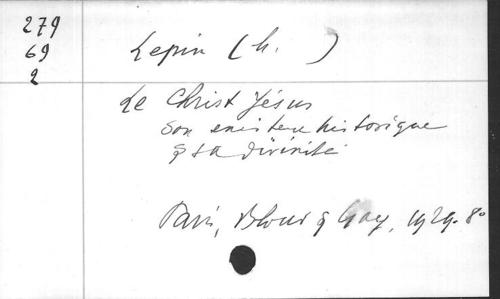 279
69
2
Lepin (M. )
Le Christ Jésus
son existence historique
& sa divinité
Paris, Bloud & Gay, 1929. 8°